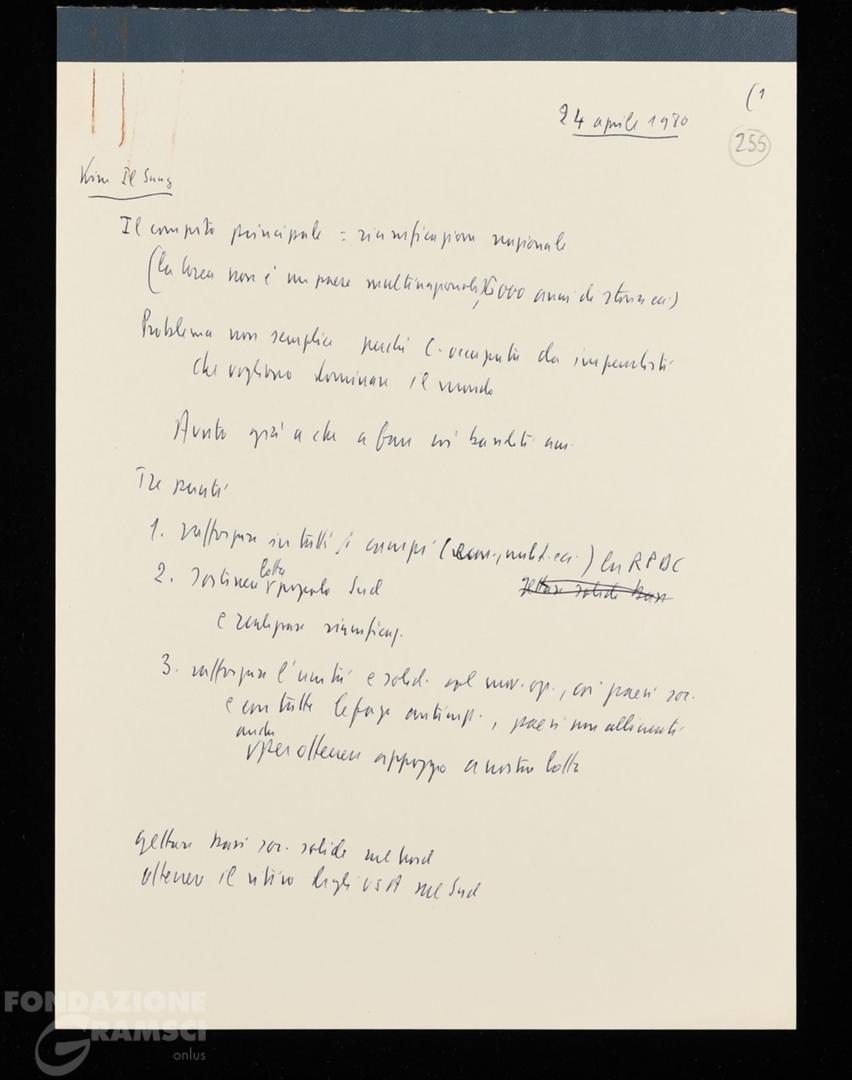 (1
24 aprile 1980
255
Kim Il Sung
Il compito principale = riunificazione nazionale
(la Corea non è un paese multinazionale, 5000 anni di storia ecc.)
Problema non semplice perché C. occupata da imperialisti
che vogliono dominare il mondo
Avuto già a che a fare coi banditi am.
Tre punti
1. rafforzare in tutti i campi (econ., milit. ecc.) la RPDC
gettare solide basi
2. sostenere lotta popolo Sud
e realizzare riunificaz.
3. rafforzare l'unità e solid. col mov. op., coi paesi soc.
e con tutte le forze antimp., paesi non allineati
anche per ottenere appoggio a nostra lotta
gettare basi soc. solide nel Nord
ottenere il ritiro degli USA nel Sud
FONDAZIONE
GRAMSCI
onlus